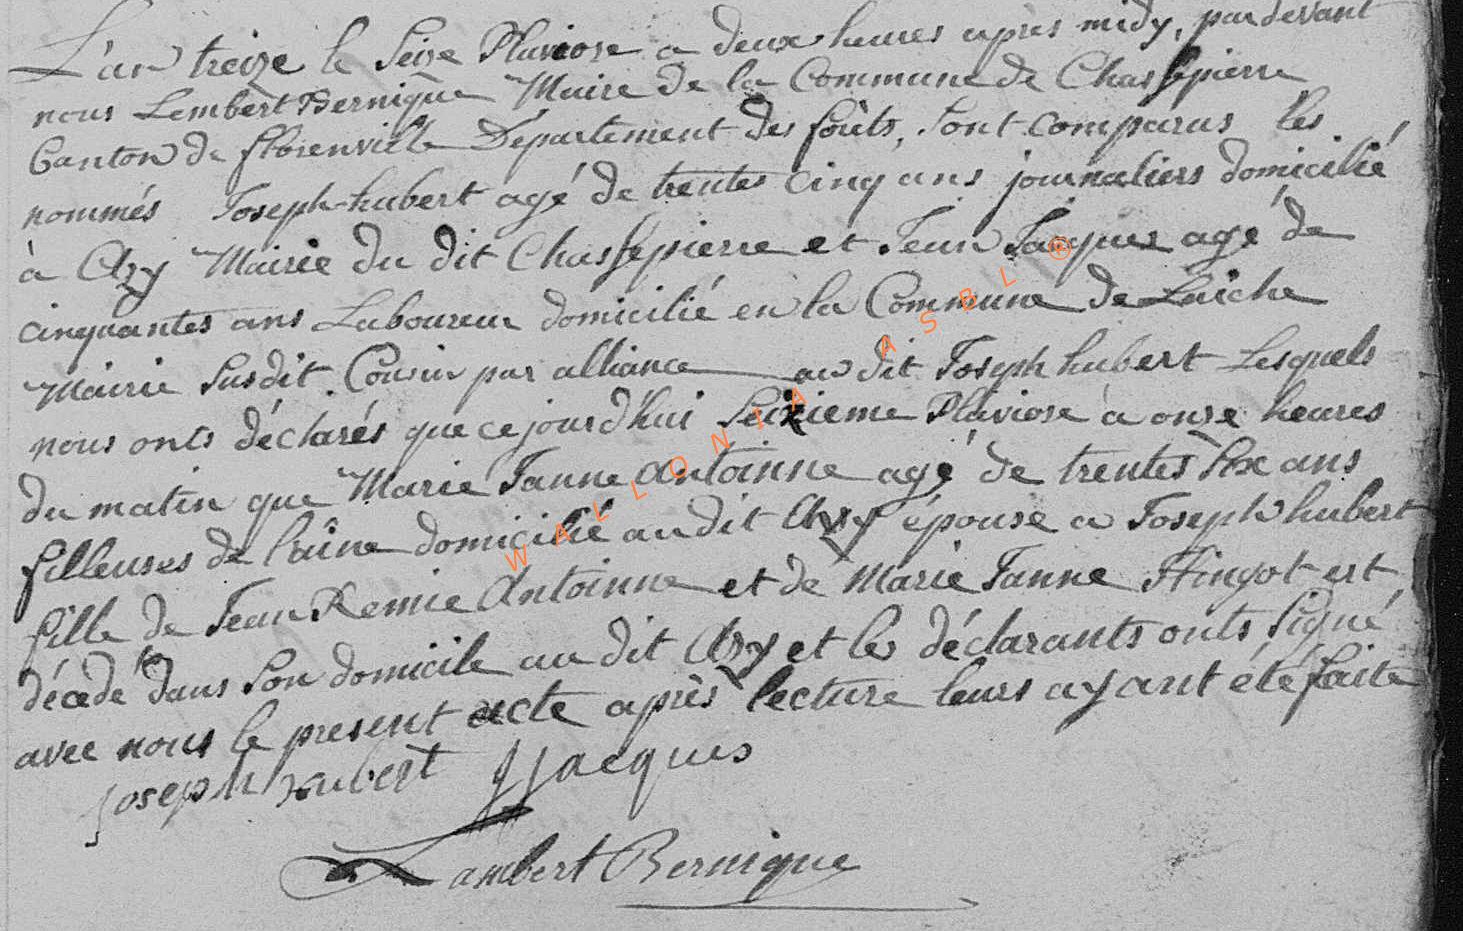 L'an treize le Seize Pluviose a deux heures apres midy, pardevant
nous Lembert Bernique Maire de la Commune de Chassepierre
Canton de florenville Departement des forêts, sont comparus les
nommés Joseph hubert agé de trentes cinq ans journaliers domicilié
à Azy Mairie du dit Chassepierre et Jean Jacques agé de
cinquantes ans Laboureur domicilié en la Commune de Laiche
Mairie susdit Cousin par alliance au dit Joseph hubert Lesquels
nous onts déclarés que cejourd'hui Seizieme Pluviose a onze heures
du matin que Marie Janne Antoinne agé de trentes six ans
filleuses de laine domicilié audit Azy épouse a Joseph hubert
fille de Jean Remie Antoinne et de Marie Janne Hingot est
décedé dans son domicile au dit Azy et les déclarants onts signé
avec nous le present acte après lecture leurs ayant été faite
Joseph hubert JJacques
Lambert Bernique
WALLONIA ASBL ®